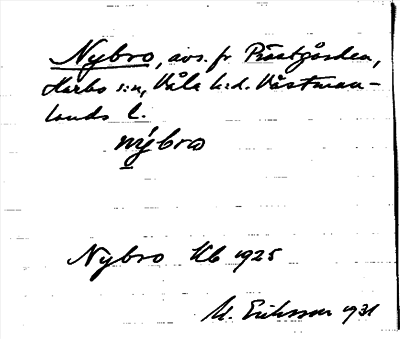 Nybro, avs. fr. Prästgården,
Harbo s:n, Våla h:d. Västman-
lands l.
nýbro
Nybro Kb 1925
M. Eriksson 1931